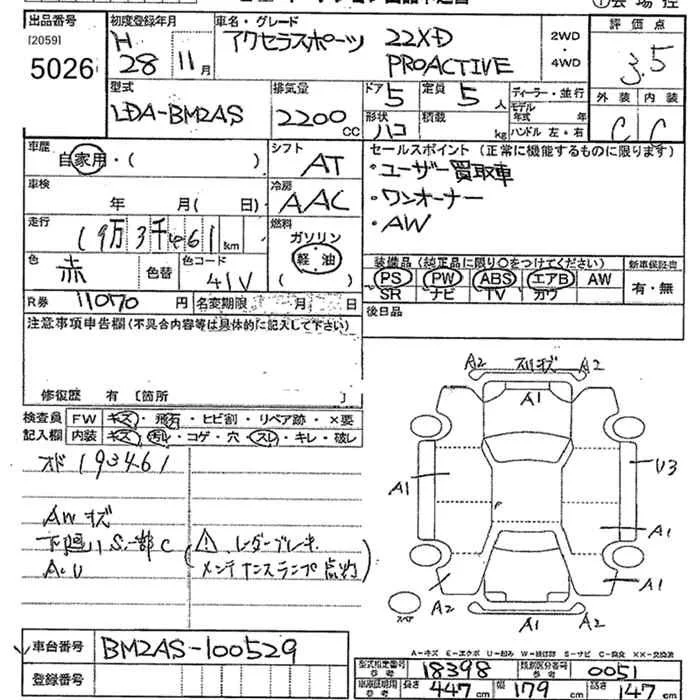 出品番号 初度登録年月 車名・グレード 評価点
[2059]
5026 H28 11月 アクセラスポーツ 22XD PROACTIVE 2WD・4WD 3.5
型式 排気量 ドア 5 定員 5人 ディーラー・並行 外装 内装
LDA-BM2AS 2200cc 形状 ハコ 積載 kg モデル年式 年 ハンドル 左・右 C C
車歴 自家用・( ) シフト AT セールスポイント (正常に機能するものに限ります)
・ユーザー買取車
車検 年 月( 日) 冷房 AAC ・ワンオーナー
・AW
走行 19万3千461km 燃料 ガソリン 軽油 ( )
色 赤 色替 色コード 41V
装備品 (純正品に限り○をつけてください) 新車保証書
PS PW ABS エアB AW 有・無
SR ナビ TV カワ
R券 11070円 名変期限 月 日 後日品
注意事項申告欄(不具合内容等は具体的に記入して下さい)
修復歴 有 [箇所 ]
検査員 FW キズ・飛石・ヒビ割・リペア跡・×要
記入欄 内装 キズ・汚レ・コゲ・穴・スレ・キレ・破レ
オド 193461
AWキズ
下廻りS、一部C
A・U
(⚠ レーダーブレーキ
メンテナンスランプ点灯)
A2 スリキズ A2
A1
U3
A1
A1
A1
A2 A1 A2
スペア
A-キズ E-エクボ U-凹み W-補修跡 S-サビ C-腐食 XX-交換済
車台番号 BM2AS-100529
登録番号
型式指定番号 参考 18398 類別区分番号 参考 0051
車庫証明用 参考 長さ 447cm 幅 179cm 高さ 147cm